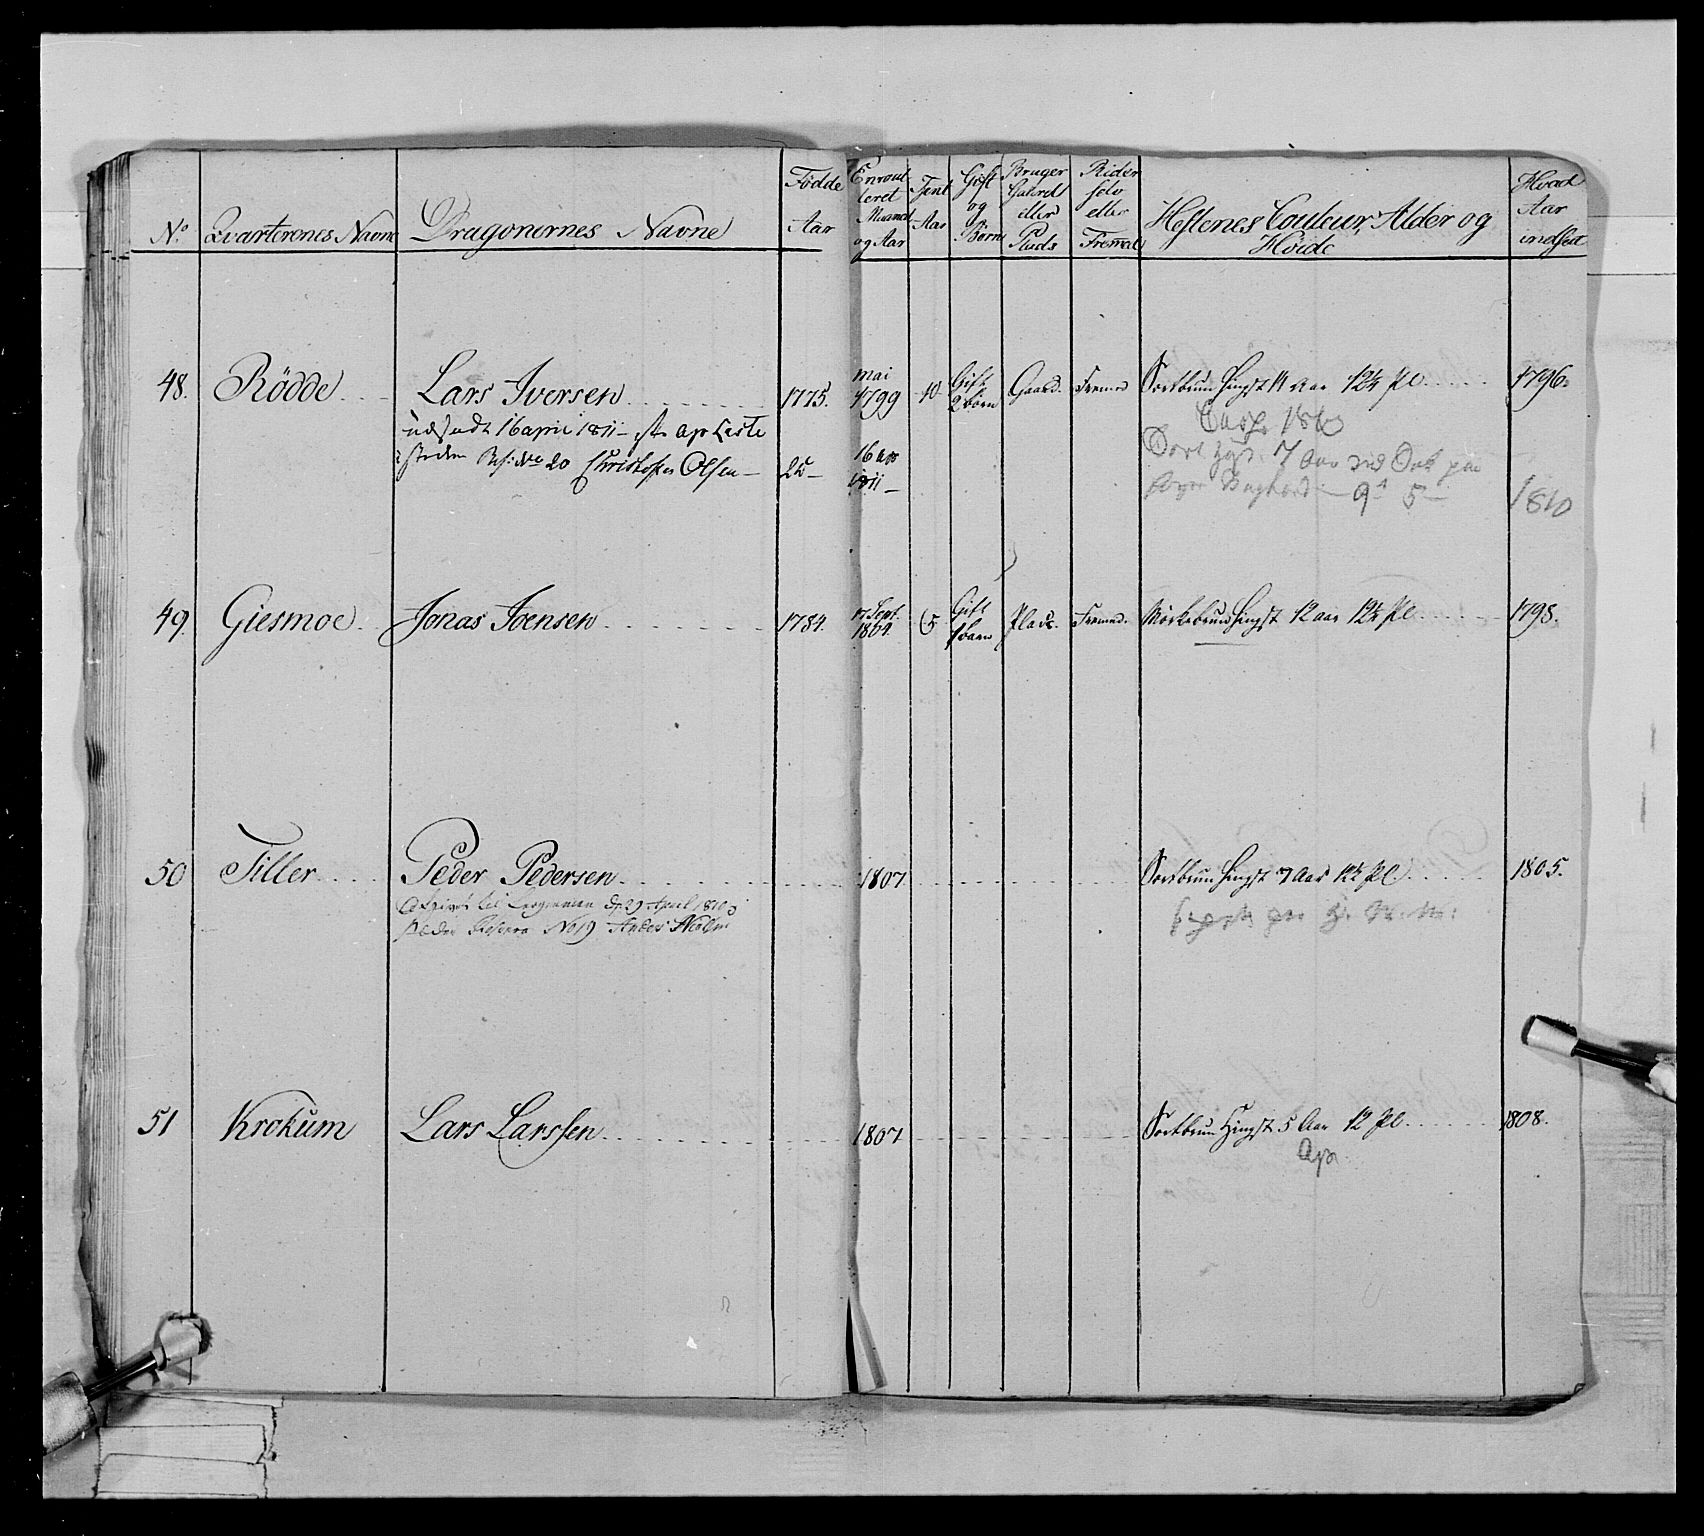 No
Qvarterenes Navne
Dragonernes Navne
Födde
Aar
Enroul
leret
Maaned
og Aar
Tient
Aar
Gift
og
Börn
Bruger
Gaard
eller
Plads
Rider
selv
eller
Fremed
Hestenes Couleur, Alder og
Höide
Hvad
Aar
indsat
48. Rödde Lars Iversen 1775. mai 1799 10 Gift 2 börn Gaard. Fremed Sortbrun Hingst 14 Aar 12½ Pl 1796.
udsadt 16 april 1811
Christopher Olsen 22 16 1811
1810
7 Aar
1810
49. Giesmoe Jonas Joensen 1784. 17 Sept. 1804. 5 Gift 1 barn Plads. Fremed. Mörkebrun Hingst 12 aar 12½ Pl 1798.
50 Tiller Peder Pedersen 1807 Sortbrun Hingst 7 Aar 12½ Pl 1805.
29 April 1810
No 19
51 Krokum Lars Larssen 1807 Sortbrun Hingst 5 Aar 12 Pl 1808.